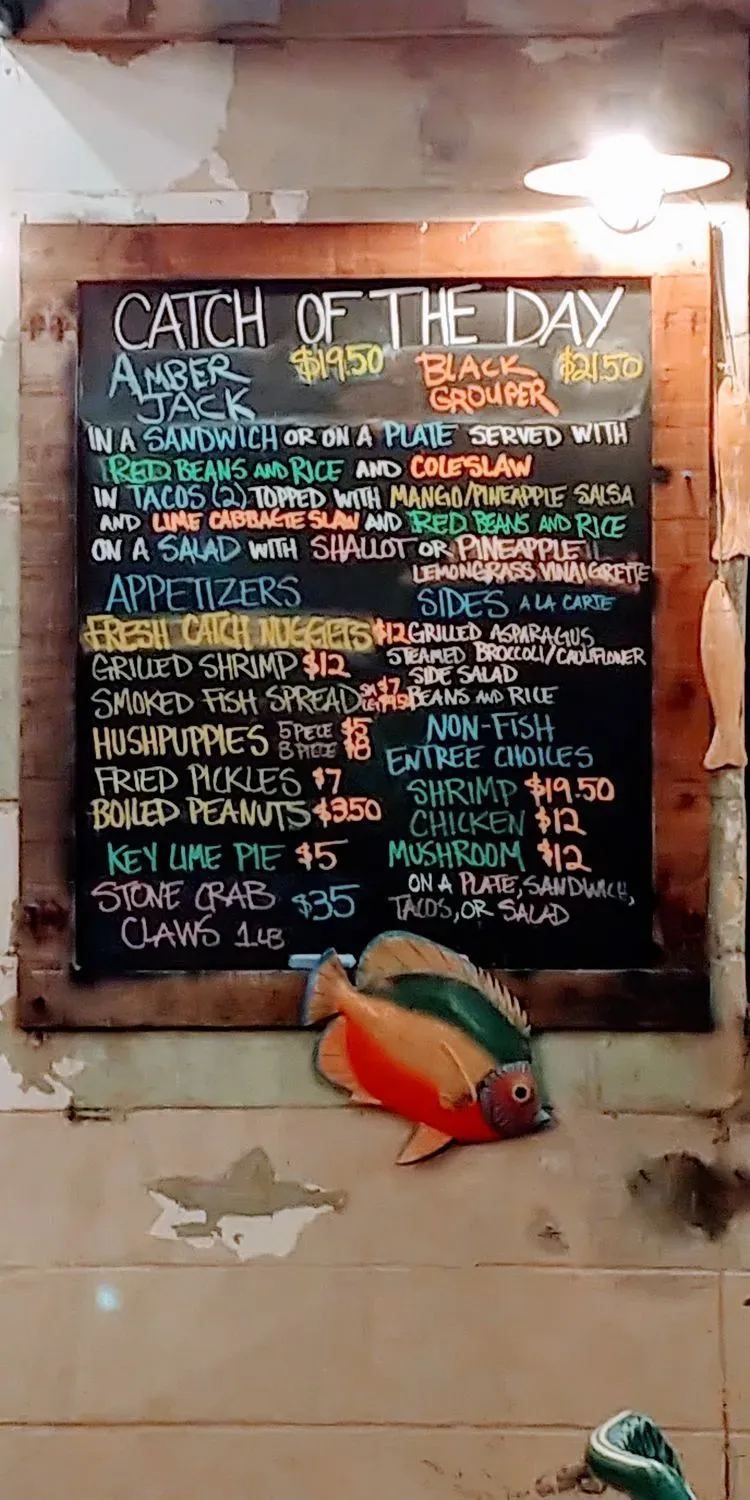 CATCH OF THE DAY
AMBER JACK $19.50
BLACK GROUPER $21.50
IN A SANDWICH OR ON A PLATE SERVED WITH
RED BEANS AND RICE AND COLESLAW
IN TACOS (2) TOPPED WITH MANGO/PINEAPPLE SALSA
AND LIME CABBAGE SLAW AND RED BEANS AND RICE
ON A SALAD WITH SHALLOT OR PINEAPPLE
LEMONGRASS VINAIGRETTE
APPETIZERS
FRESH CATCH NUGGETS $12
GRILLED SHRIMP $12
SMOKED FISH SPREAD SM $7
HUSHPUPPIES 5 PIECE $5
8 PIECE $8
FRIED PICKLES $7
BOILED PEANUTS $3.50
KEY LIME PIE $5
STONE CRAB
CLAWS 1LB $35
SIDES A LA CARTE
GRILLED ASPARAGUS
STEAMED BROCCOLI/CAULIFLOWER
SIDE SALAD
BEANS AND RICE
NON-FISH
ENTREE CHOICES
SHRIMP $19.50
CHICKEN $12
MUSHROOM $12
ON A PLATE, SANDWICH,
TACOS, OR SALAD